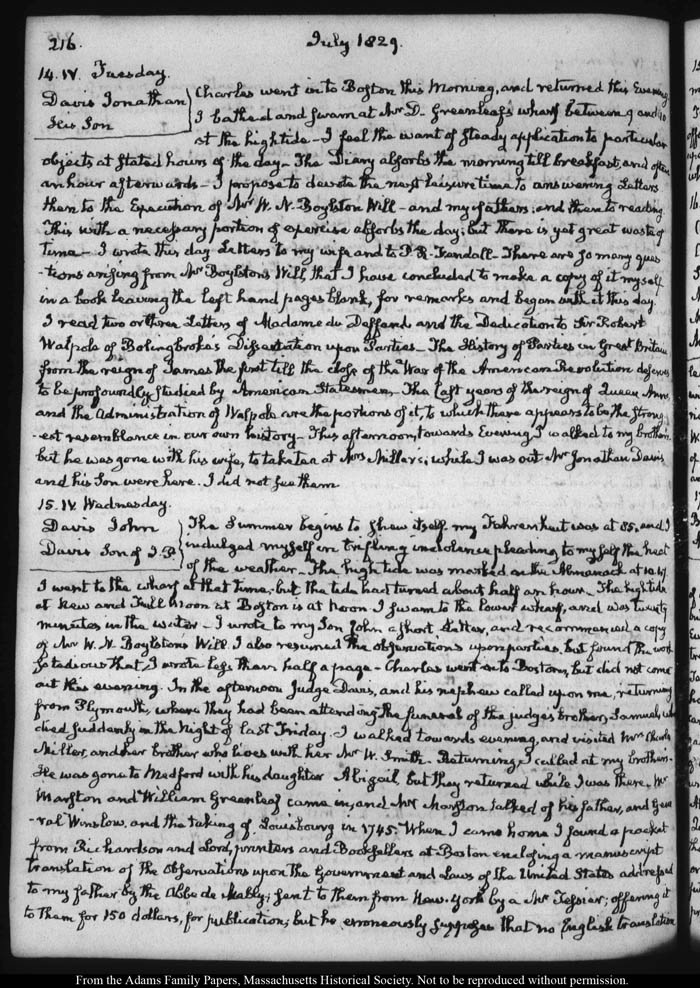 216.
July 1829.
14. IV. Tuesday.
Davis Jonathan
His Son
Charles went in to Boston this Morning, and returned this Evening
I bathed and swam at Mr D. Greenleaf's wharf between 9 and 10
at the high tide – I feel the want of steady application to particular
objects at stated hours of the day – The Diary absorbs the morning till breakfast, and often
an hour afterwards – I propose to devote the next leisure time to answering Letters
then to the Execution of Mr W. N. Boylston's Will – and my father's; and then to reading
This with a necessary portion of exercise absorbs the day; but there is yet great waste of
time – I wrote this day Letters to my wife and to P. R. Fendall – There are so many ques
-tions arising from Mr Boylston's Will, that I have concluded to make a copy of it myself
in a book leaving the left hand pages blank, for remarks and began with it this day.
I read two or three Letters of Madame du Deffand and the Dedication to Sir Robert
Walpole of Bolingbroke's Dissertation upon Parties – The History of Parties in Great Britain
from the reign of James the first till the close of the War of the American Revolution deserves
to be profoundly studied by American Statesmen. The last years of the reign of Queen Anne,
and the Administration of Walpole are the portions of it, to which there appears to be the strong
-est resemblance in our own history – This afternoon, towards Evening I walked to my brother's
but he was gone with his wife, to take tea at Mrs Miller's; while I was out Mr Jonathan Davis
and his Son were here. I did not see them
15. IV. Wednesday.
Davis John
Davis Son of I. P.
The Summer begins to shew itself. my Fahrenheit was at 85. and I
indulged myself in trifling indolence pleading to myself the heat
of the weather – The high tide was marked in the Almanack at 10.47.
I went to the wharf at that time, but the tide had turned about half an hour. The high tide
at New and Full Moon at Boston is at Noon I swam to the lower wharf, and was twenty
minutes in the water – I wrote to my Son John a short Letter, and recommenced a copy
of Mr W. N. Boylston's Will. I also resumed the observations upon parties, but found the work
so tedious that I wrote less than half a page – Charles went into Boston, but did not come
out this evening. In the afternoon Judge Davis, and his nephew called upon me, returning
from Plymouth, where they had been attending the funeral of the judge's brother, Samuel, who
died suddenly in the Night of last Friday. I walked towards evening, and visited Mrs Charles
Miller, and her brother who lives with her Mr W. Smith. Returning, I called at my brother's.
He was gone to Medford with his daughter Abigail, but they returned while I was there. Mr
Marston and William Greenleaf came in, and Mr Marston talked of his father, and Gene
-ral Winslow, and the taking of Louisbourg in 1745. When I came home I found a packet
from Richardson and Lord, printers and Booksellers at Boston enclosing a manuscript
translation of the Observations upon the Government and Laws of the United States addressed
to my father by the Abbé de Mably; sent to them from New York by a Mr Tessier; offering it
to them for 150 dollars, for publication; but he erroneously supposes that no English translation
From the Adams Family Papers, Massachusetts Historical Society. Not to be reproduced without permission.